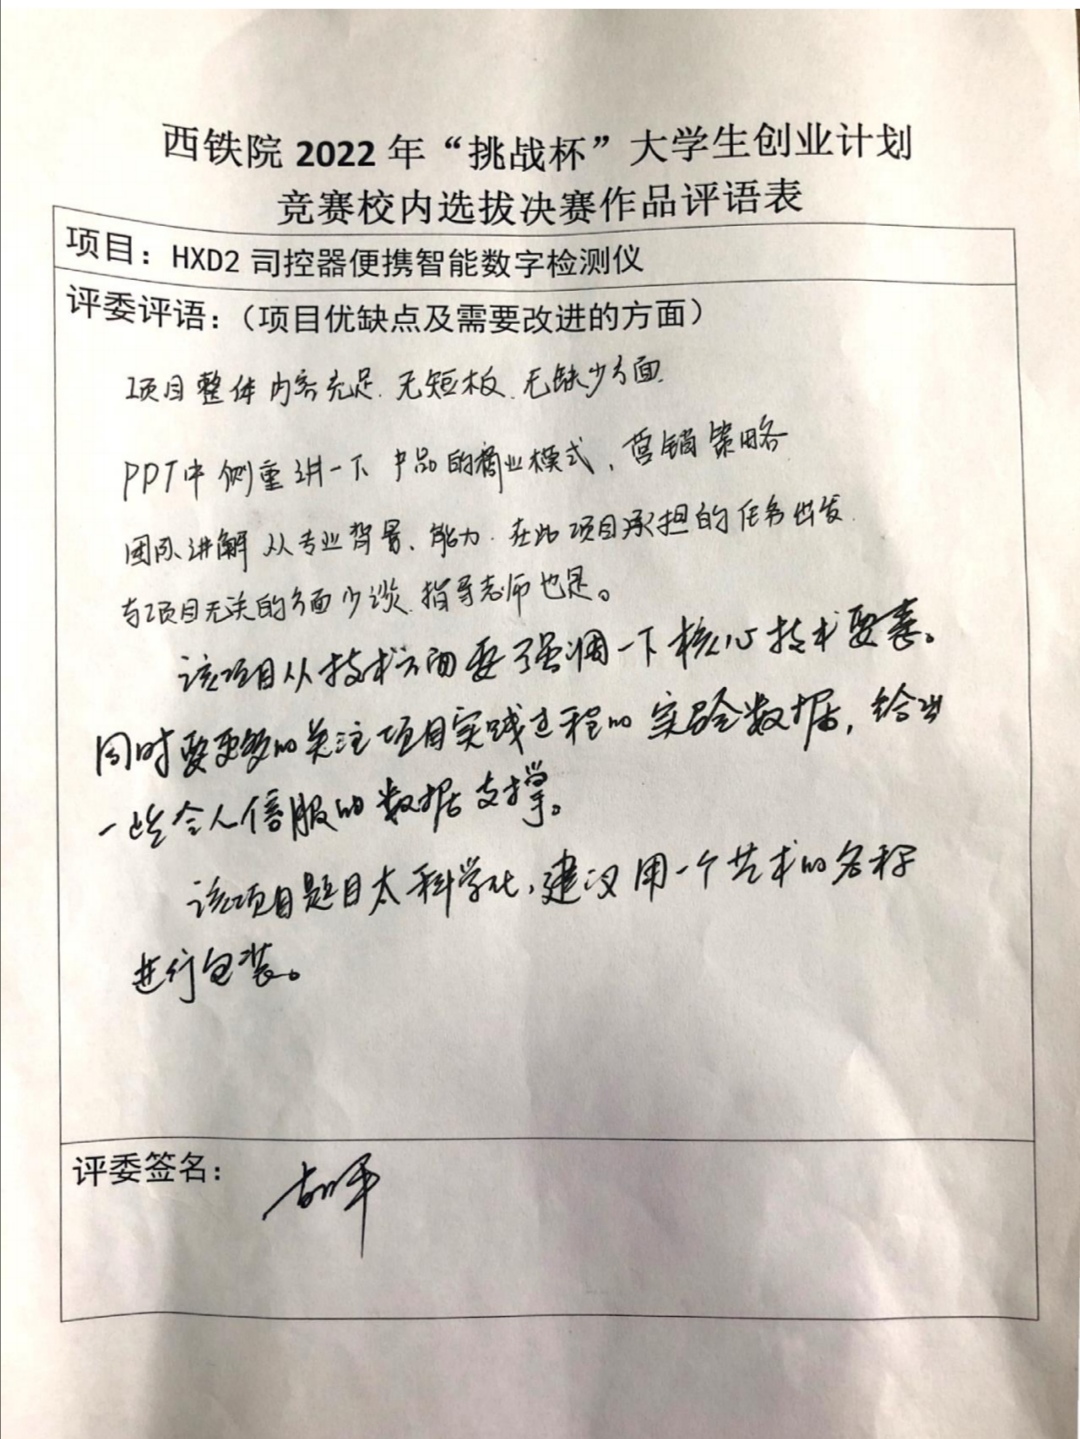 西铁院 2022 年“挑战杯”大学生创业计划
竞赛校内选拔决赛作品评语表
项目：HXD2 司控器便携智能数字检测仪
评委评语：（项目优缺点及需要改进的方面）
项目整体内容充足.无短板.无缺少方面.
PPT中侧重讲一下产品的商业模式，营销策略
团队讲解从专业背景、能力.在此项目承担的任务出发.
与项目无关的方面少谈.指导老师也是。
该项目从技术方面要强调一下核心技术要素。
同时要更多的关注项目实践过程的实验数据，给出
一些令人信服的数据支撑。
该项目题目太科学化，建议用一个艺术的名称
进行包装。
评委签名：